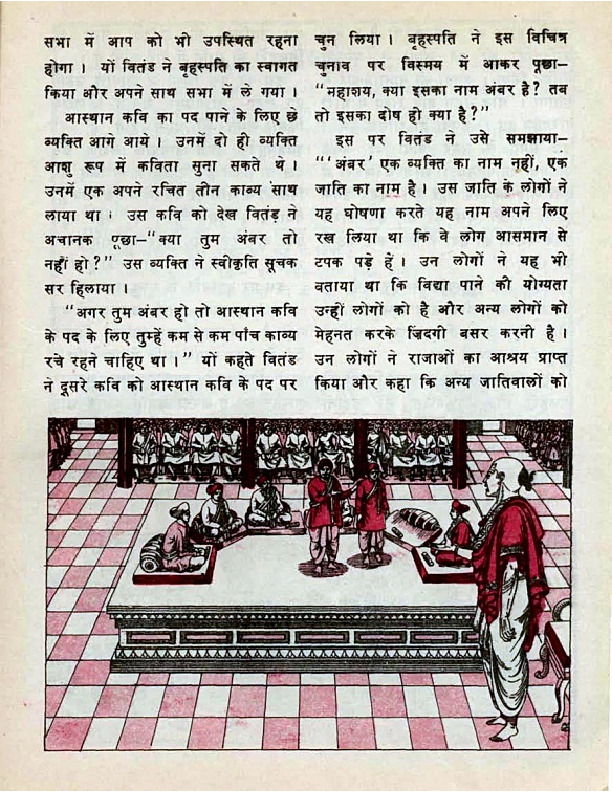 सभा में आप को भी उपस्थित रहना
होगा। यों वितंड ने बृहस्पति का स्वागत
किया और अपने साथ सभा में ले गया।
आस्थान कवि का पद पाने के लिए छे
व्यक्ति आगे आये। उनमें दो ही व्यक्ति
आशु रूप में कविता सुना सकते थे।
उनमें एक अपने रचित तीन काव्य साथ
लाया था। उस कवि को देख वितंड ने
अचानक पूछा–"क्या तुम अंबर तो
नहीं हो?" उस व्यक्ति ने स्वीकृति सूचक
सर हिलाया।
"अगर तुम अंबर हो तो आस्थान कवि
के पद के लिए तुम्हें कम से कम पाँच काव्य
रचे रहने चाहिए था।" यों कहते वितंड
ने दूसरे कवि को आस्थान कवि के पद पर
चुन लिया। बृहस्पति ने इस विचित्र
चुनाव पर विस्मय में आकर पूछा–
"महाशय, क्या इसका नाम अंबर है? तब
तो इसका दोष ही क्या है?"
इस पर वितंड ने उसे समझाया–
"'अंबर' एक व्यक्ति का नाम नहीं, एक
जाति का नाम है। उस जाति के लोगों ने
यह घोषणा करते यह नाम अपने लिए
रख लिया था कि वे लोग आसमान से
टपक पड़े हैं। उन लोगों ने यह भी
बताया था कि विद्या पाने की योग्यता
उन्हीं लोगों को है और अन्य लोगों को
मेहनत करके ज़िंदगी बसर करनी है।
उन लोगों ने राजाओं का आश्रय प्राप्त
किया और कहा कि अन्य जातिवालों को